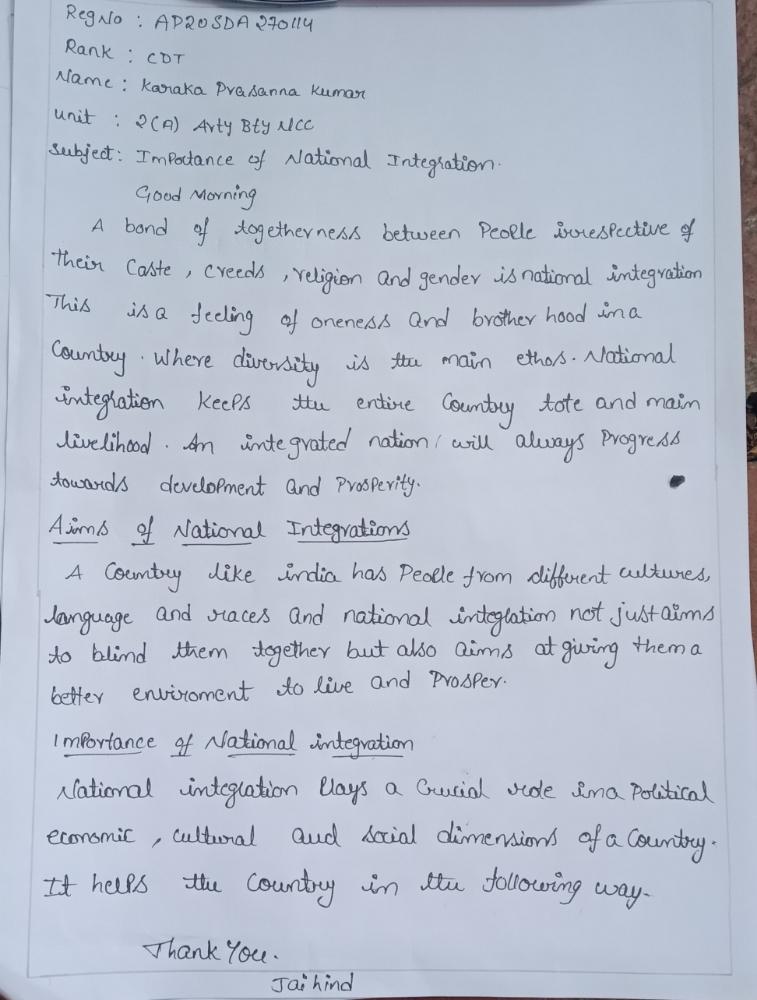 RegNo : AP20SDA270114
Rank : CDT
Name : Karaka Prasanna Kumar
unit : 2(A) Arty Bty NCC
Subject: Impoctance of National Integration.
Good Morning
A bond of togetherness between People irrespective of
their Caste, creeds, religion and gender is national integration
This is a feeling of oneness and brother hood in a
Country. Where diversity is the main ethos. National
integration Keeps the entire Country tote and main
livelihood. An integrated nation, will always Progress
towards development and Prosperity.
Aims of National Integrations
A Country like india has People from different cultures,
language and races and national integlation not just aims
to blind them together but also aims at giving them a
better enviroment to live and Prosper.
Importance of National integration
National integlation Plays a Crucial role in a Political
economic, cultural and social dimensions of a Country.
It helps the Country in the following way.
Thank You.
Jai hind